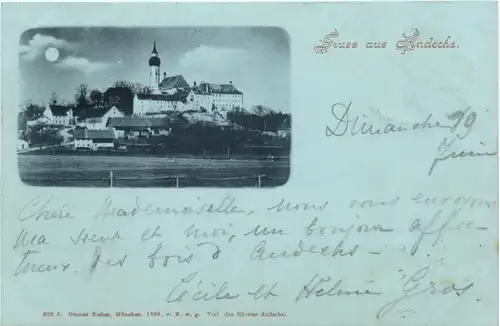 Gruss aus Andechs.
Dimanche 19
Juin
Chère Mademoiselle, nous vous envoyons
Ma soeur et moi, un bonjour affec-
tueux des bois d'Andechs -
Cécile et Hélène Gros.
Ottmar Zieher, München. 1898. v. H. w. g. Verl. des Klosters Andechs.